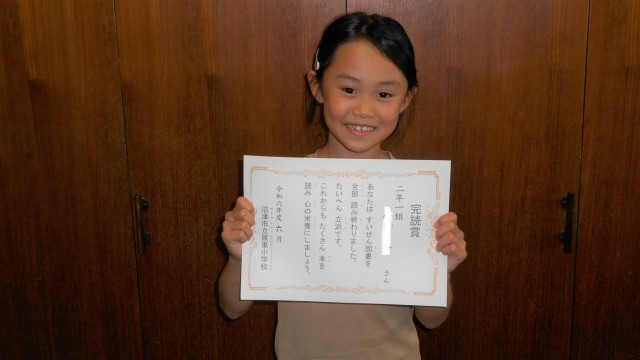 完読賞
二年一組 さん
あなたは すいせん図書を
全部 読み終わりました。
たいへん 立派です。
これからも たくさん 本を
読み 心の栄養にしましょう。
令和六年度 六月
沼津市立原東小学校